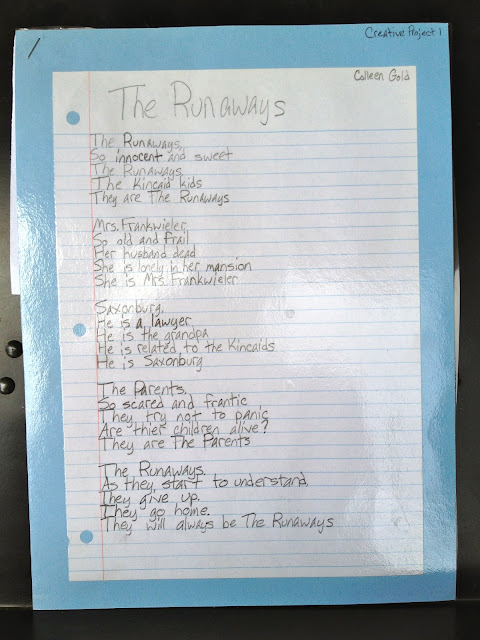 Creative Project 1
Colleen Gold
The Runaways
The Runaways,
So innocent and sweet
The Runaways
The Kincaid kids
They are The Runaways
Mrs. Frankwieler
So old and frail
Her husband dead
She is lonely in her mansion
She is Mrs. Frankwieler
Saxonburg,
He is a lawyer
He is the grandpa
He is related to the Kincaids
He is Saxonburg
The Parents,
So scared and frantic
They try not to panic
Are thier children alive?
They are The Parents
The Runaways.
As they start to understand,
They give up.
They go home.
They will always be The Runaways